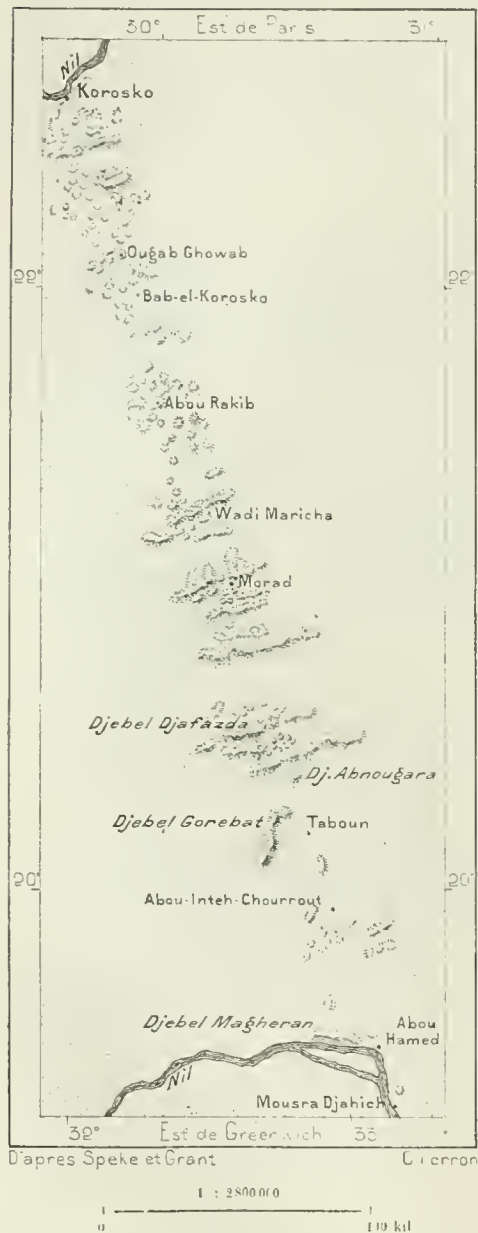 30° Est de Paris 31°
Nil
Korosko
Ougab Ghowab
22° 22°
Bab-el-Korosko
Abou Rakib
Wadi Maricha
Morad
Djebel Djafazda
Dj. Abnougara
Djebel Gorebat Taboun
20° 20°
Abou-Inteh-Chourrout
Djebel Magheran
Abou
Hamed
Nil
Mousra Djahich
32° Est de Greenwich 33
D'apres Speke et Grant
1 : 2800000
0 100 kil